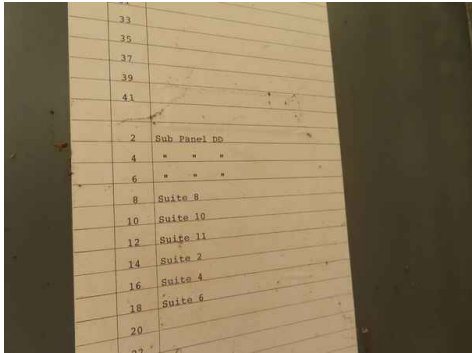 33
35
37
39
41
2 Sub Panel DD
4 " " "
6 " " "
8 Suite 8
10 Suite 10
12 Suite 11
14 Suite 2
16 Suite 4
18 Suite 6
20